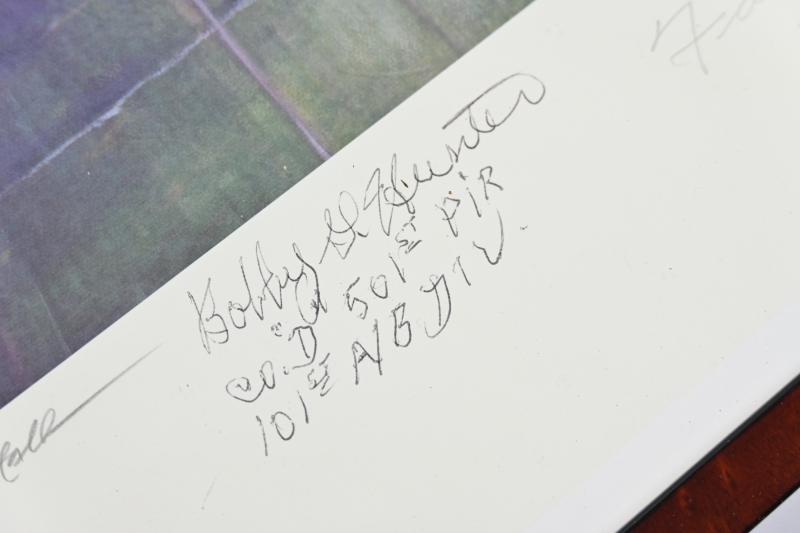 Bobby G. Hunter
Co. "D" 501st PIR
101st A/B DIV.